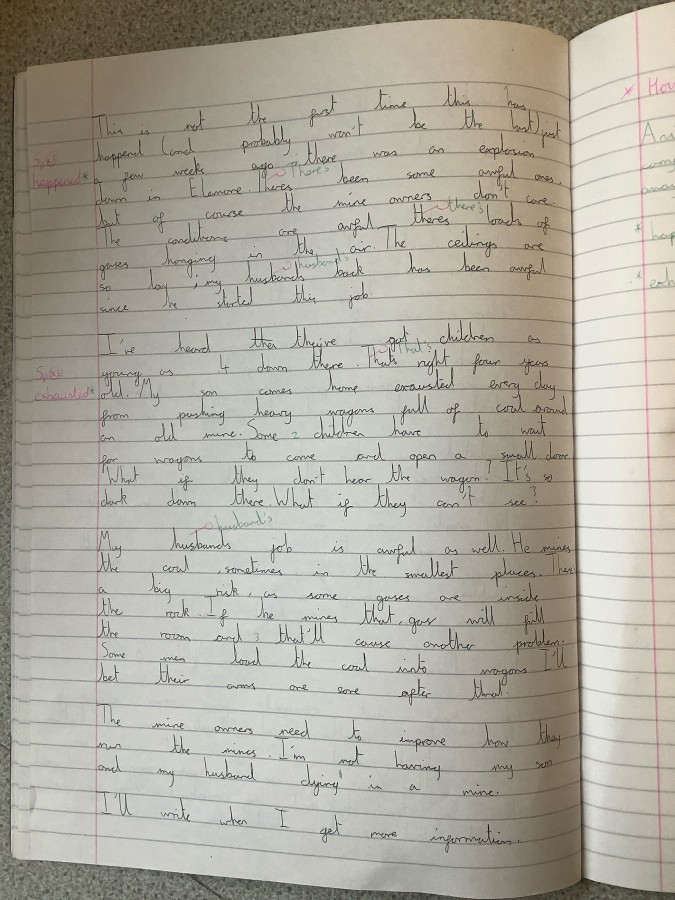 This is not the first time this has
happend (and probably won't be the last) just
Sp@
happened*
a few weeks ago, there was an explosion
There's
down in Elemore. Theres been some awful ones,
but of course the mine owners don't care.
there's
The conditions are awful, theres loads of
gases hanging in the air. The ceilings are
husband's
so low ; my husbands back has been awful
since he started this job.
I've heard that they've got children as
That's
young as 4 down there. Thats right four years
Sp@
exhausted*
old. My son comes home exausted every day
from pushing heavy wagons full of coal around
an old mine. Some children have to wait
for wagons to come and open a small door.
What if they don't hear the wagon? It's so
dark down there. What if they can't see?
husband's
My husbands job is awful as well. He mines
the coal, sometimes in the smallest places. There
a big risk, as some gases are inside
the rock. If he mines that, gas will fill
the room and that'll cause another problem.
Some men load the coal into wagons. I'll
bet their arms are sore after that.
The mine owners need to improve how they
run the mines. I'm not having my son
and my husband dying in a mine.
I'll write when I get more information.
* How